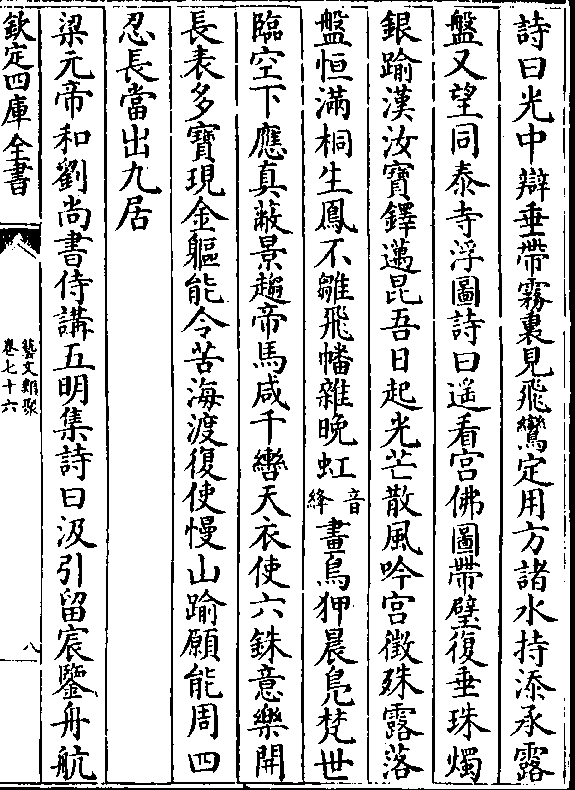 詩曰光中辯垂帶霧裏見飛鸞定用方諸水持添承露
盤又望同泰寺浮圖詩曰遥看宫佛圖帶璧復垂珠燭
銀踰漢汝寳鐸邁昆吾日起光芒散風吟宫徵殊露落
盤恒滿桐生鳳不雛飛幡雜晩虹音絳畫鳥狎晨鳬梵世
臨空下應真蔽景趨帝馬咸千轡天衣使六銖意樂開
長表多寳現金軀能令苦海渡復使慢山踰願能周四
忍長當出九居
梁元帝和劉尚書侍講五明集詩曰汲引留宸鑒舟航
欽定四庫全書
藝文類聚
卷七十六
八